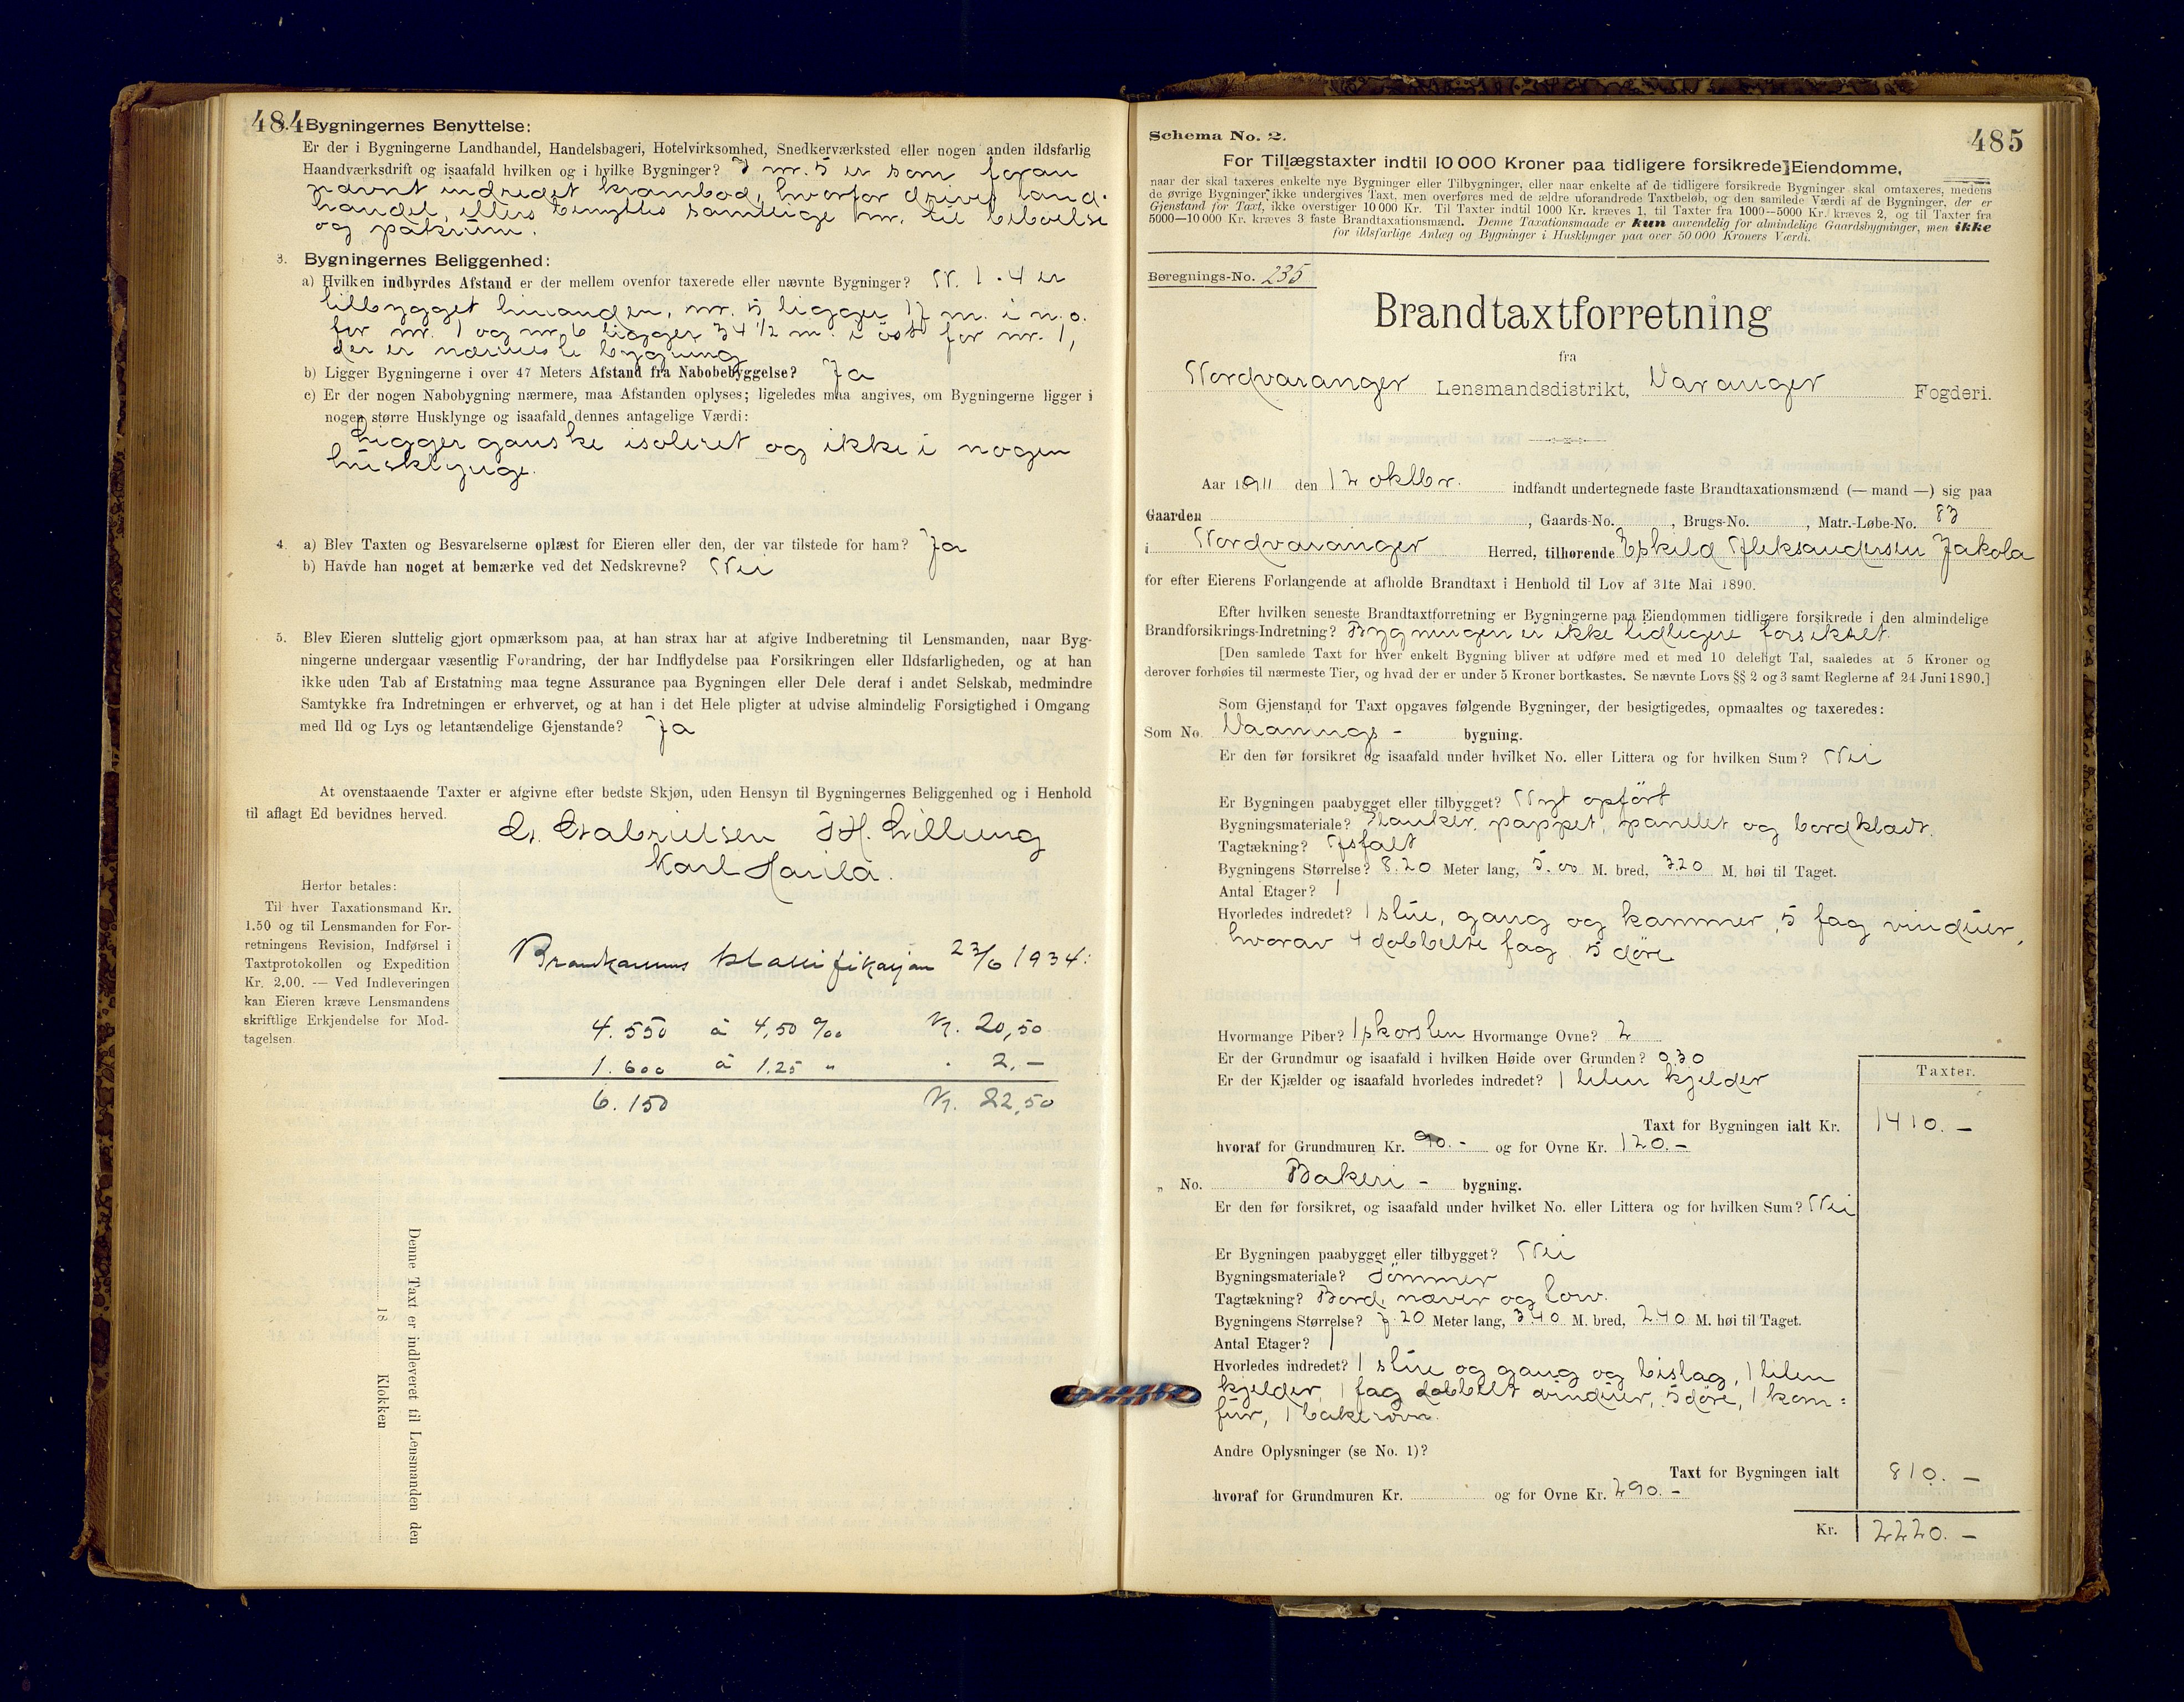 484
Bygningernes Benyttelse:
Er der i Bygningerne Landhandel, Handelsbageri, Hotelvirksomhed, Snedkerværksted eller nogen anden ildsfarlig
Haandværksdrift og isaafald hvilken og i hvilke Bygninger? I nr. 5 er som foran
nævnt indredet krambod, hvorfor drives land-
handel, ellers benyttes samtlige nr. til beboelse
og pakrum.
3. Bygningernes Beliggenhed:
a) Hvilken indbyrdes Afstand er der mellem ovenfor taxerede eller nævnte Bygninger? N. 1 - 4 er
tilbygget hinanden, nr. 5 ligger 17 m. i n.o.
for nr. 1 og nr. 6 ligger 34 1/2 m. i öst for nr. 1,
der er nærmeste bygning
b) Ligger Bygningerne i over 47 Meters Afstand fra Nabobebyggelse? Ja
c) Er der nogen Nabobygning nærmere, maa Afstanden oplyses; ligeledes maa angives, om Bygningerne ligger i
nogen større Husklynge og isaafald dennes antagelige Værdi:
Ligger ganske isoleret og ikke i nogen
husklynge.
4. a) Blev Taxten og Besvarelserne oplæst for Eieren eller den, der var tilstede for ham? Ja
b) Havde han noget at bemærke ved det Nedskrevne? Nei
5. Blev Eieren sluttelig gjort opmærksom paa, at han strax har at afgive Indberetning til Lensmanden, naar Byg-
ningerne undergaar væsentlig Forandring, der har Indflydelse paa Forsikringen eller Ildsfarligheden, og at han
ikke uden Tab af Erstatning maa tegne Assurance paa Bygningen eller Dele deraf i andet Selskab, medmindre
Samtykke fra Indretningen er erhvervet, og at han i det Hele pligter at udvise almindelig Forsigtighed i Omgang
med Ild og Lys og letantændelige Gjenstande? Ja
At ovenstaaende Taxter er afgivne efter bedste Skjøn, uden Hensyn til Bygningernes Beliggenhed og i Henhold
til aflagt Ed bevidnes herved.
Gabrielsen H. Lilleng
Karl Harila.
Herfor betales:
Til hver Taxationsmand Kr.
1.50 og til Lensmanden for For-
retningens Revision, Indførsel i
Taxtprotokollen og Expedition
Kr. 2.00. — Ved Indleveringen
kan Eieren kræve Lensmandens
skriftlige Erkjendelse for Mod-
tagelsen.
Brankassens klassifikasjon 23/6 1934:
4.550 à 4,50 ‰ Kr. 20,50
1.600 à 1.25 " " 2,-
6.150 Kr. 22,50
Denne Taxt er indleveret til Lensmanden den
18 Klokken
485
Schema No. 2.
For Tillægstaxter indtil 10 000 Kroner paa tidligere forsikrede Eiendomme,
naar der skal taxeres enkelte nye Bygninger eller Tilbygninger, eller naar enkelte af de tidligere forsikrede Bygninger skal omtaxeres, medens
de øvrige Bygninger ikke undergives Taxt, men overføres med de ældre uforandrede Taxtbeløb, og den samlede Værdi af de Bygninger, der er
Gjenstand for Taxt, ikke overstiger 10 000 Kr. Til Taxter indtil 1000 Kr. kræves 1, til Taxter fra 1000—5000 Kr. kræves 2, og til Taxter fra
5000—10 000 Kr. kræves 3 faste Brandtaxationsmænd. Denne Taxationsmaade er kun anvendelig for almindelige Gaardsbygninger, men ikke
for ildsfarlige Anlæg og Bygninger i Husklynger paa over 50 000 Kroners Værdi.
Beregnings-No. 235
Brandtaxtforretning
fra
Nordvaranger Lensmandsdistrikt, Varanger Fogderi.
Aar 1911 den 12 oktbr. indfandt undertegnede faste Brandtaxationsmænd (— mand —) sig paa
Gaarden , Gaards-No. , Brugs-No. , Matr.-Løbe-No. 83
i Nordvaranger Herred, tilhørende Eskild Aleksandersen Jakola
for efter Eierens Forlangende at afholde Brandtaxt i Henhold til Lov af 31te Mai 1890.
Efter hvilken seneste Brandtaxtforretning er Bygningerne paa Eiendommen tidligere forsikrede i den almindelige
Brandforsikrings-Indretning? Bygningen er ikke tidligere forsikret.
[Den samlede Taxt for hver enkelt Bygning bliver at udføre med et med 10 deleligt Tal, saaledes at 5 Kroner og
derover forhøies til nærmeste Tier, og hvad der er under 5 Kroner bortkastes. Se nævnte Lovs §§ 2 og 3 samt Reglerne af 24 Juni 1890.]
Som Gjenstand for Taxt opgaves følgende Bygninger, der besigtigedes, opmaaltes og taxeredes:
Som No. Vaanings - bygning.
Er den før forsikret og isaafald under hvilket No. eller Littera og for hvilken Sum? Nei
Er Bygningen paabygget eller tilbygget? Nyt opført
Bygningsmateriale? Planker, pappet, panelet og bordklædt.
Tagtækning? Asfalt
Bygningens Størrelse? 8.20 Meter lang, 5.00 M. bred, 3.20 M. høi til Taget.
Antal Etager? 1
Hvorledes indredet? 1 stue, gang og kammer, 5 fag vinduer,
hvorav 4 dobbelte fag. 5 döre
Hvormange Piber? 1 skorsten Hvormange Ovne? 2
Er der Grundmur og isaafald i hvilken Høide over Grunden? 0,30
Er der Kjælder og isaafald hvorledes indredet? 1 liten kjelder
Taxter.
Taxt for Bygningen ialt Kr. 1410.-
hvoraf for Grundmuren Kr. 90.- og for Ovne Kr. 120.-
„ No. Bakeri - bygning.
Er den før forsikret, og isaafald under hvilket No. eller Littera og for hvilken Sum? Nei
Er Bygningen paabygget eller tilbygget? Nei
Bygningsmateriale? Tömmer
Tagtækning? Bord, næver og torv.
Bygningens Størrelse? 7.20 Meter lang, 3.40 M. bred, 2.40 M. høi til Taget.
Antal Etager? 1
Hvorledes indredet? 1 stue og gang og bislag, 1 liten
kjelder, 1 fag dobbelt vinduer, 5 döre, 1 kom=
fur, 1 bakerovn.
Andre Oplysninger (se No. 1)?
Taxt for Bygningen ialt 810.-
hvoraf for Grundmuren Kr. og for Ovne Kr. 290.-
Kr. 2220.-